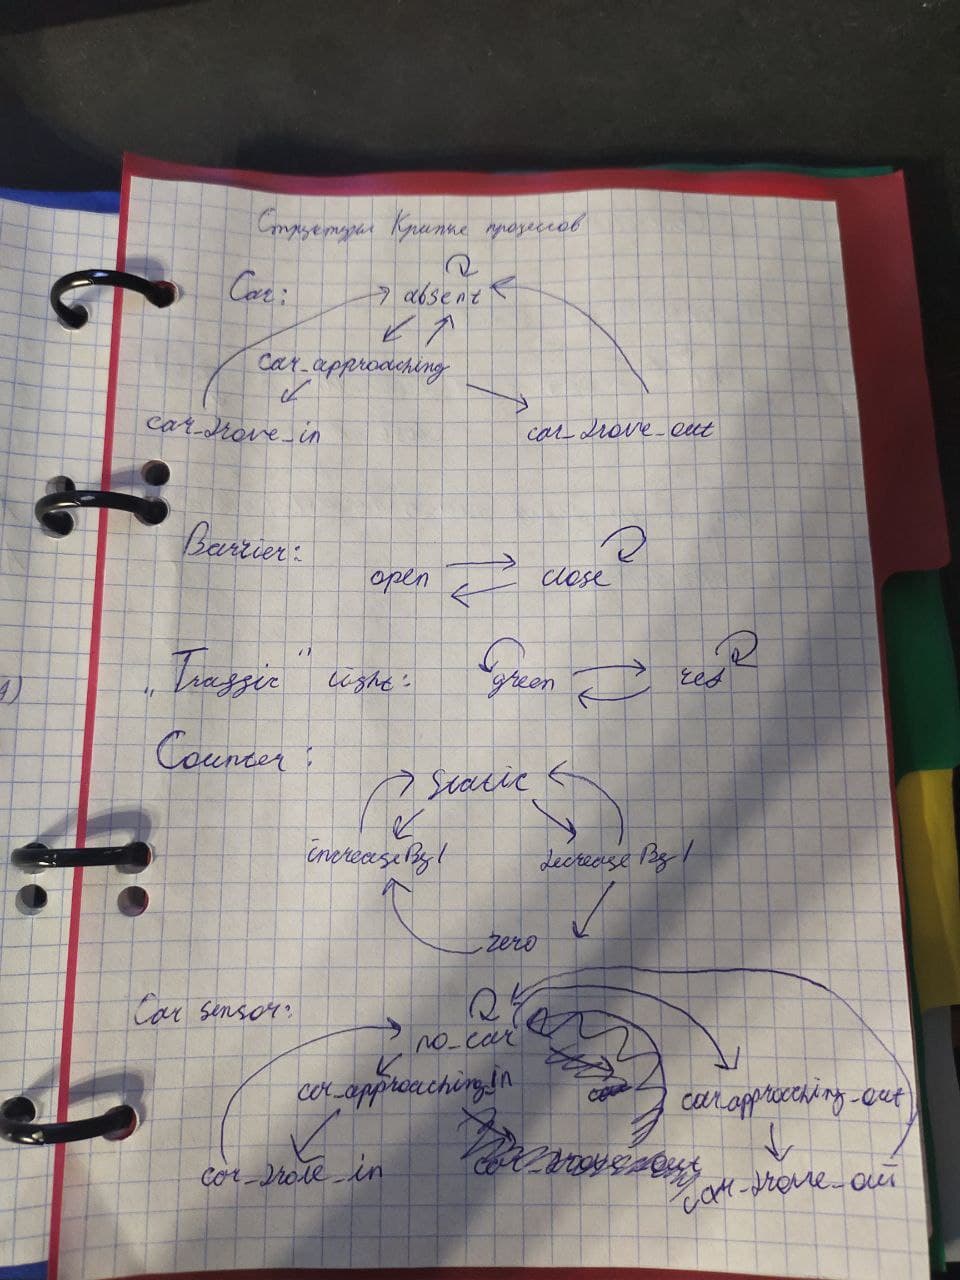 Структуры Крипке процессов
Car:
absent
car_approaching
car_drove_in
car_drove_out
Barrier:
open
close
"Traffic" light:
green
red
Counter:
static
increaseBy1
decreaseBy1
zero
Car sensor:
no_car
car_approaching_in
car_approaching_out
car_drove_in
car_drove_out